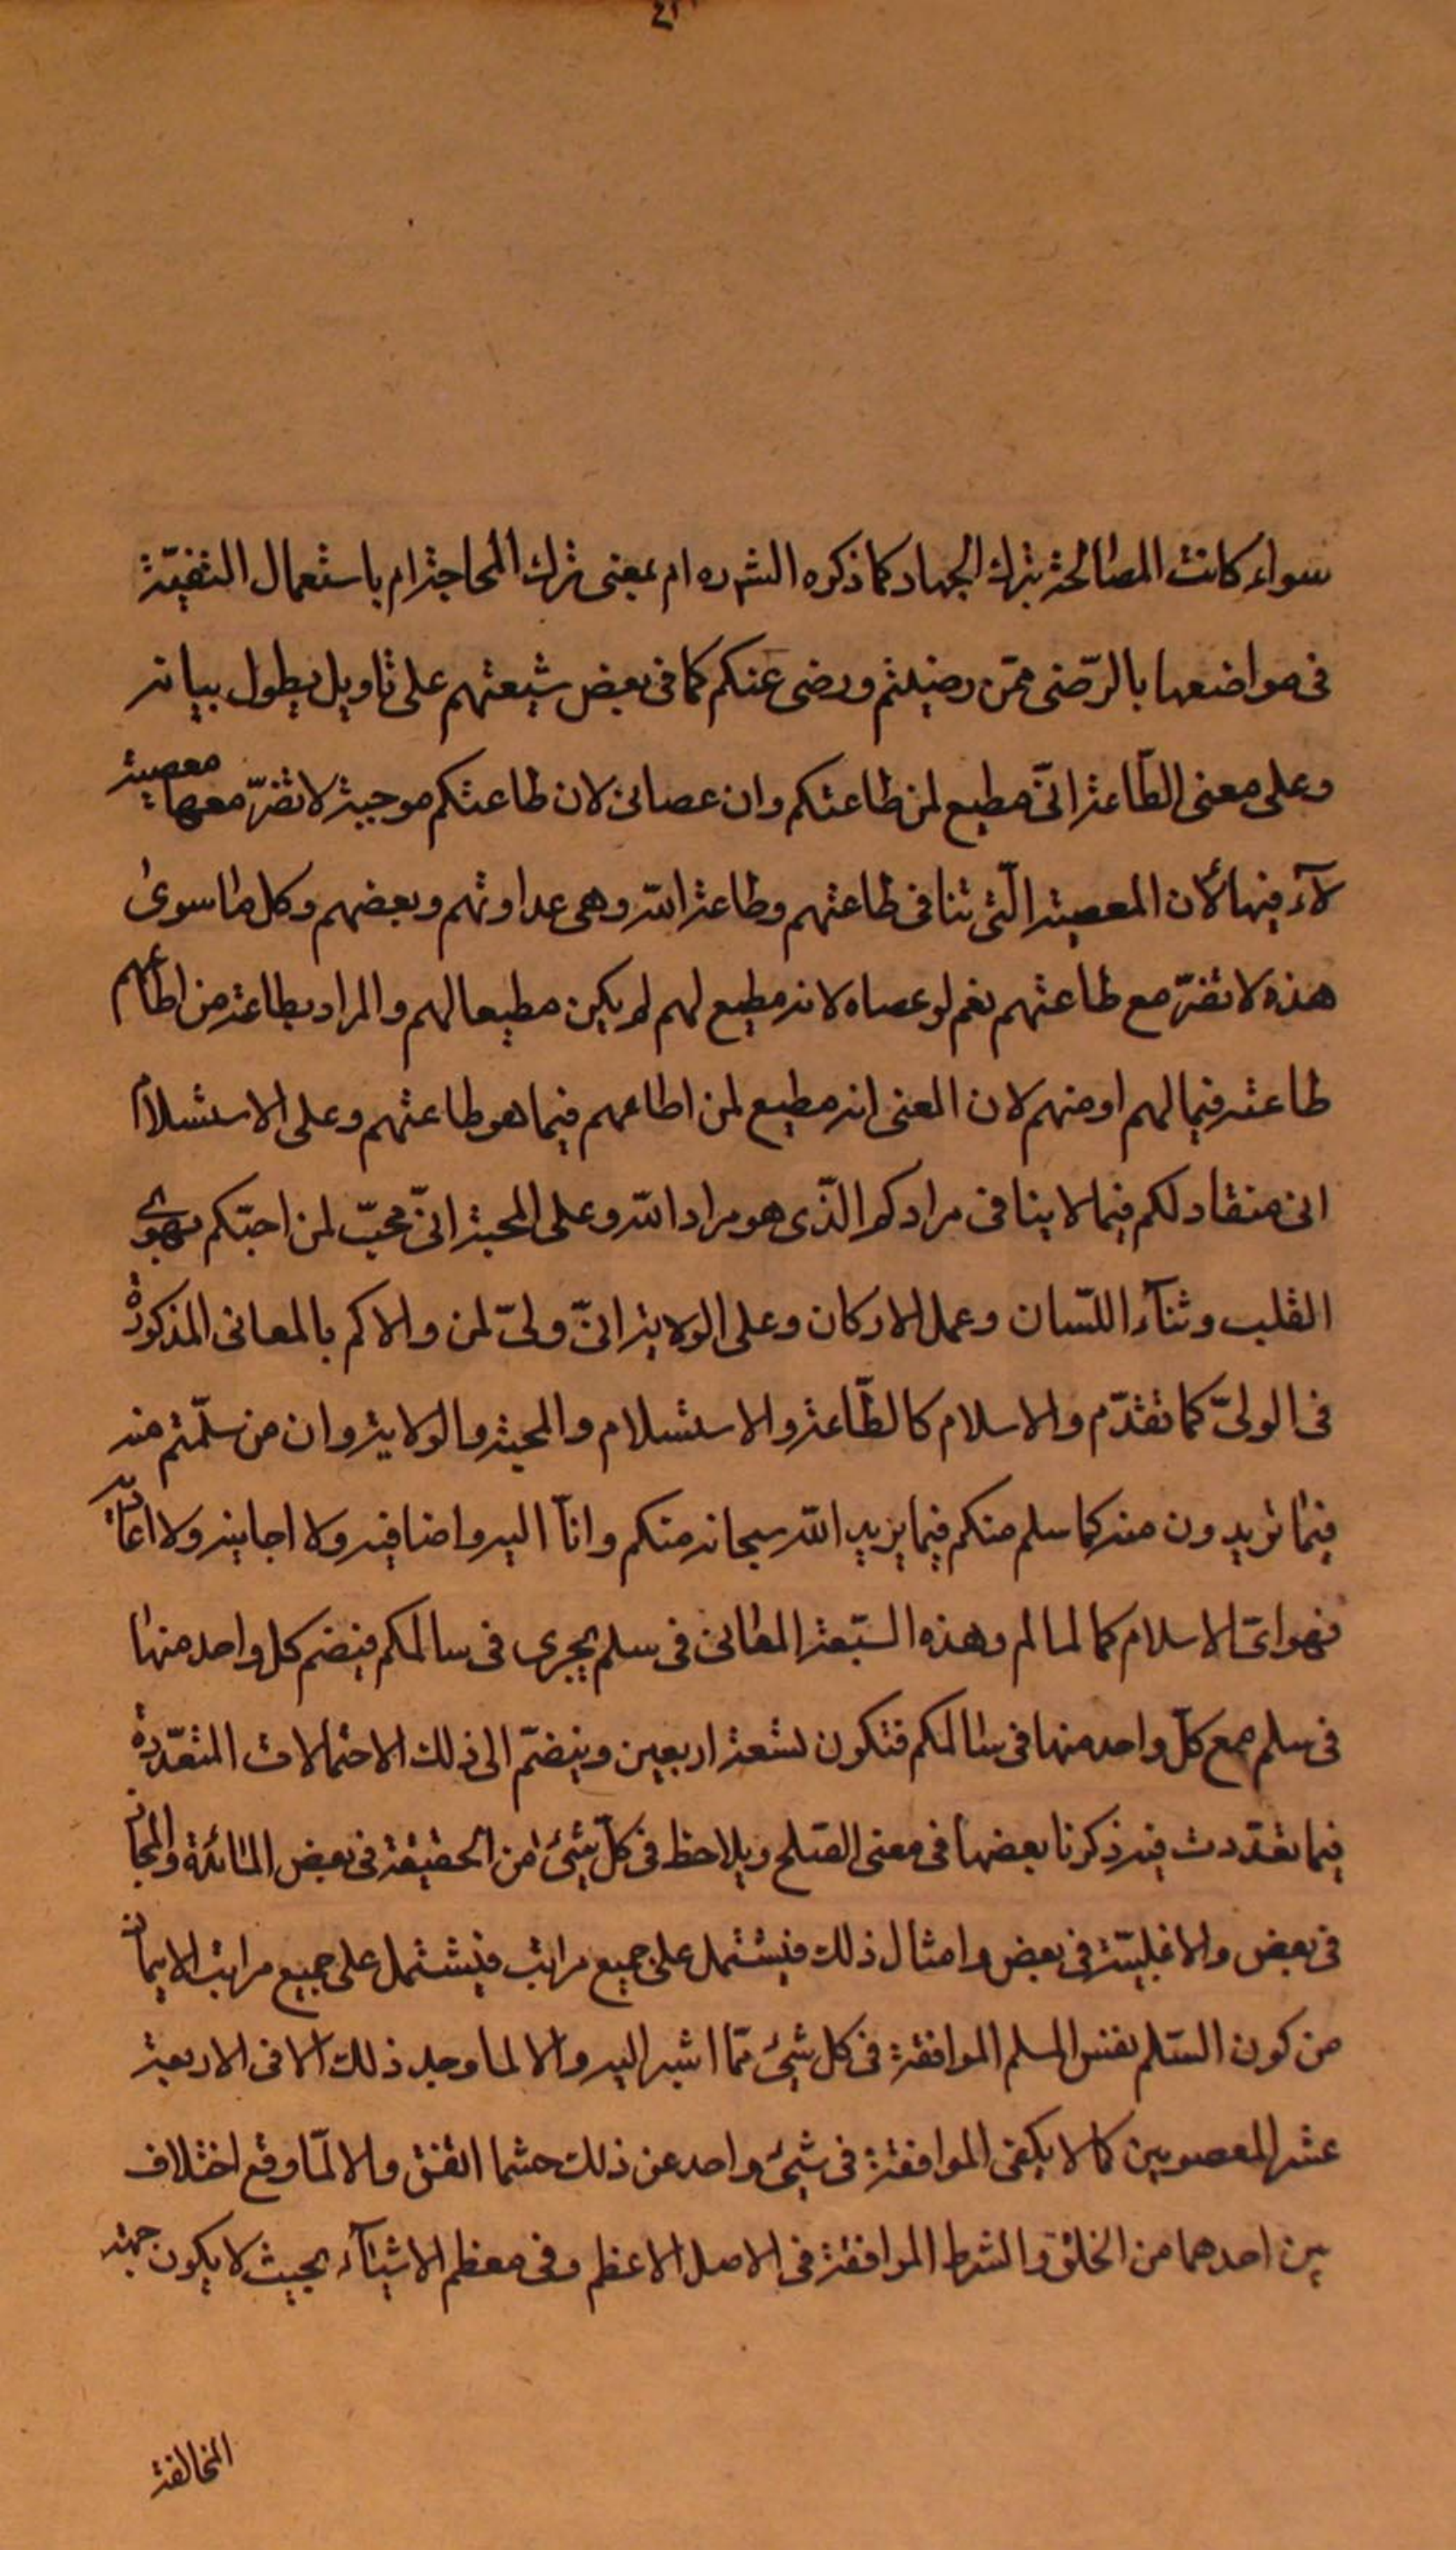 سواء كانت المصالحة بترك الجهاد كما ذكره الش ره ام بمعنى ترك المحاجة ام باستعمال التقيّة
فى مواضعها بالرّضى عمّن رضيتم ورضى عنكم كما فى بعض شيعتهم على تاويل يطول بيانه
وعلى معنى الطّاعة انّى مطيع لمن طاعتكم وان عصانى لان طاعتكم موجبة لا تضرّ معها معصية
لان المعصية الّتى تنافى طاعتهم وطاعة الله وهى عداوتهم وبعضهم وكل ما سوى
هذه لا تضرّ مع طاعتهم نعم لو عصاه لانه مطيع لهم لم يكن مطيعا لهم والمراد بطاعة من اطاعهم
طاعته فيما لهم او منهم لان المعنى انه مطيع لمن اطاعهم فيما هو طاعتهم وعلى الاستسلام
انى منقاد لكم فيما لا ينافى مرادكم الّذى هو مراد الله وعلى المحبة انّى محبّ لمن احبّكم بهوى
القلب وثنآء اللّسان وعمل الاركان وعلى الولاية انّى ولىّ لمن والاكم بالمعانى المذكورة
فى الولىّ كما تقدّم والاسلام كالطّاعة والاستسلام والمحبة والولاية وان من سلّمتم منه
فيما تريدون منه كما سلم منكم فيما يريد الله سبحانه منكم وانآ اليه واضافيه ولا اجانبه ولا
فهو اىّ الاسلام كما لمالم وهذه السّبعة المعانى فى سلم يجرى فى سالمكم فيضم كل واحد منها
فى سلم مع كلّ واحد منها فى سالمكم فتكون تسعة اربعين وينضمّ الى ذلك الاحتمالات المتعدّدة
فيما تعدّدت فيه ذكرنا بعضها فى معنى الصّلح ويلاحظ فى كلّ شئ من الحقيقة فى بعض والمجاز
فى بعض والاغلبيّة فى بعض وامثال ذلك فيشتمل على جميع مراتب فيشتمل على جميع مراتب الايمان
من كون السّلم نفس المسلم الموافقة فى كل شئ ممّا اشير اليه والا لما وجد ذلك الا فى الاربعة
عشر المعصومين كما لا يكفى الموافقة فى شئ واحد عن ذلك حتما اتفق والا لمّا وقع اختلاف
بين احدهما من الخلق والشرط الموافقة فى الاصل الاعظم وفى معظم الاشيآء بحيث لا يكون جهة
المخالفة